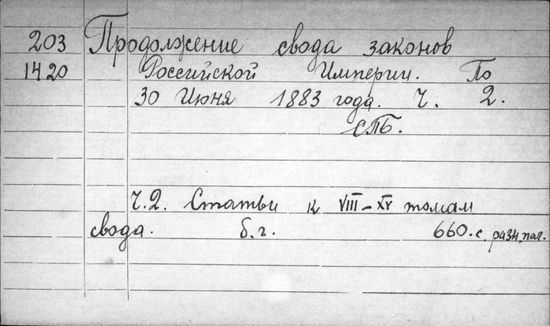 203 Продолжение свода законов
1420 Российской Империи. По
30 Июня 1883 года. Ч. 2.
СПб.
Ч.2. Статьи к VIII–XV томам
свода. б.г. 660.с. разн.паг.